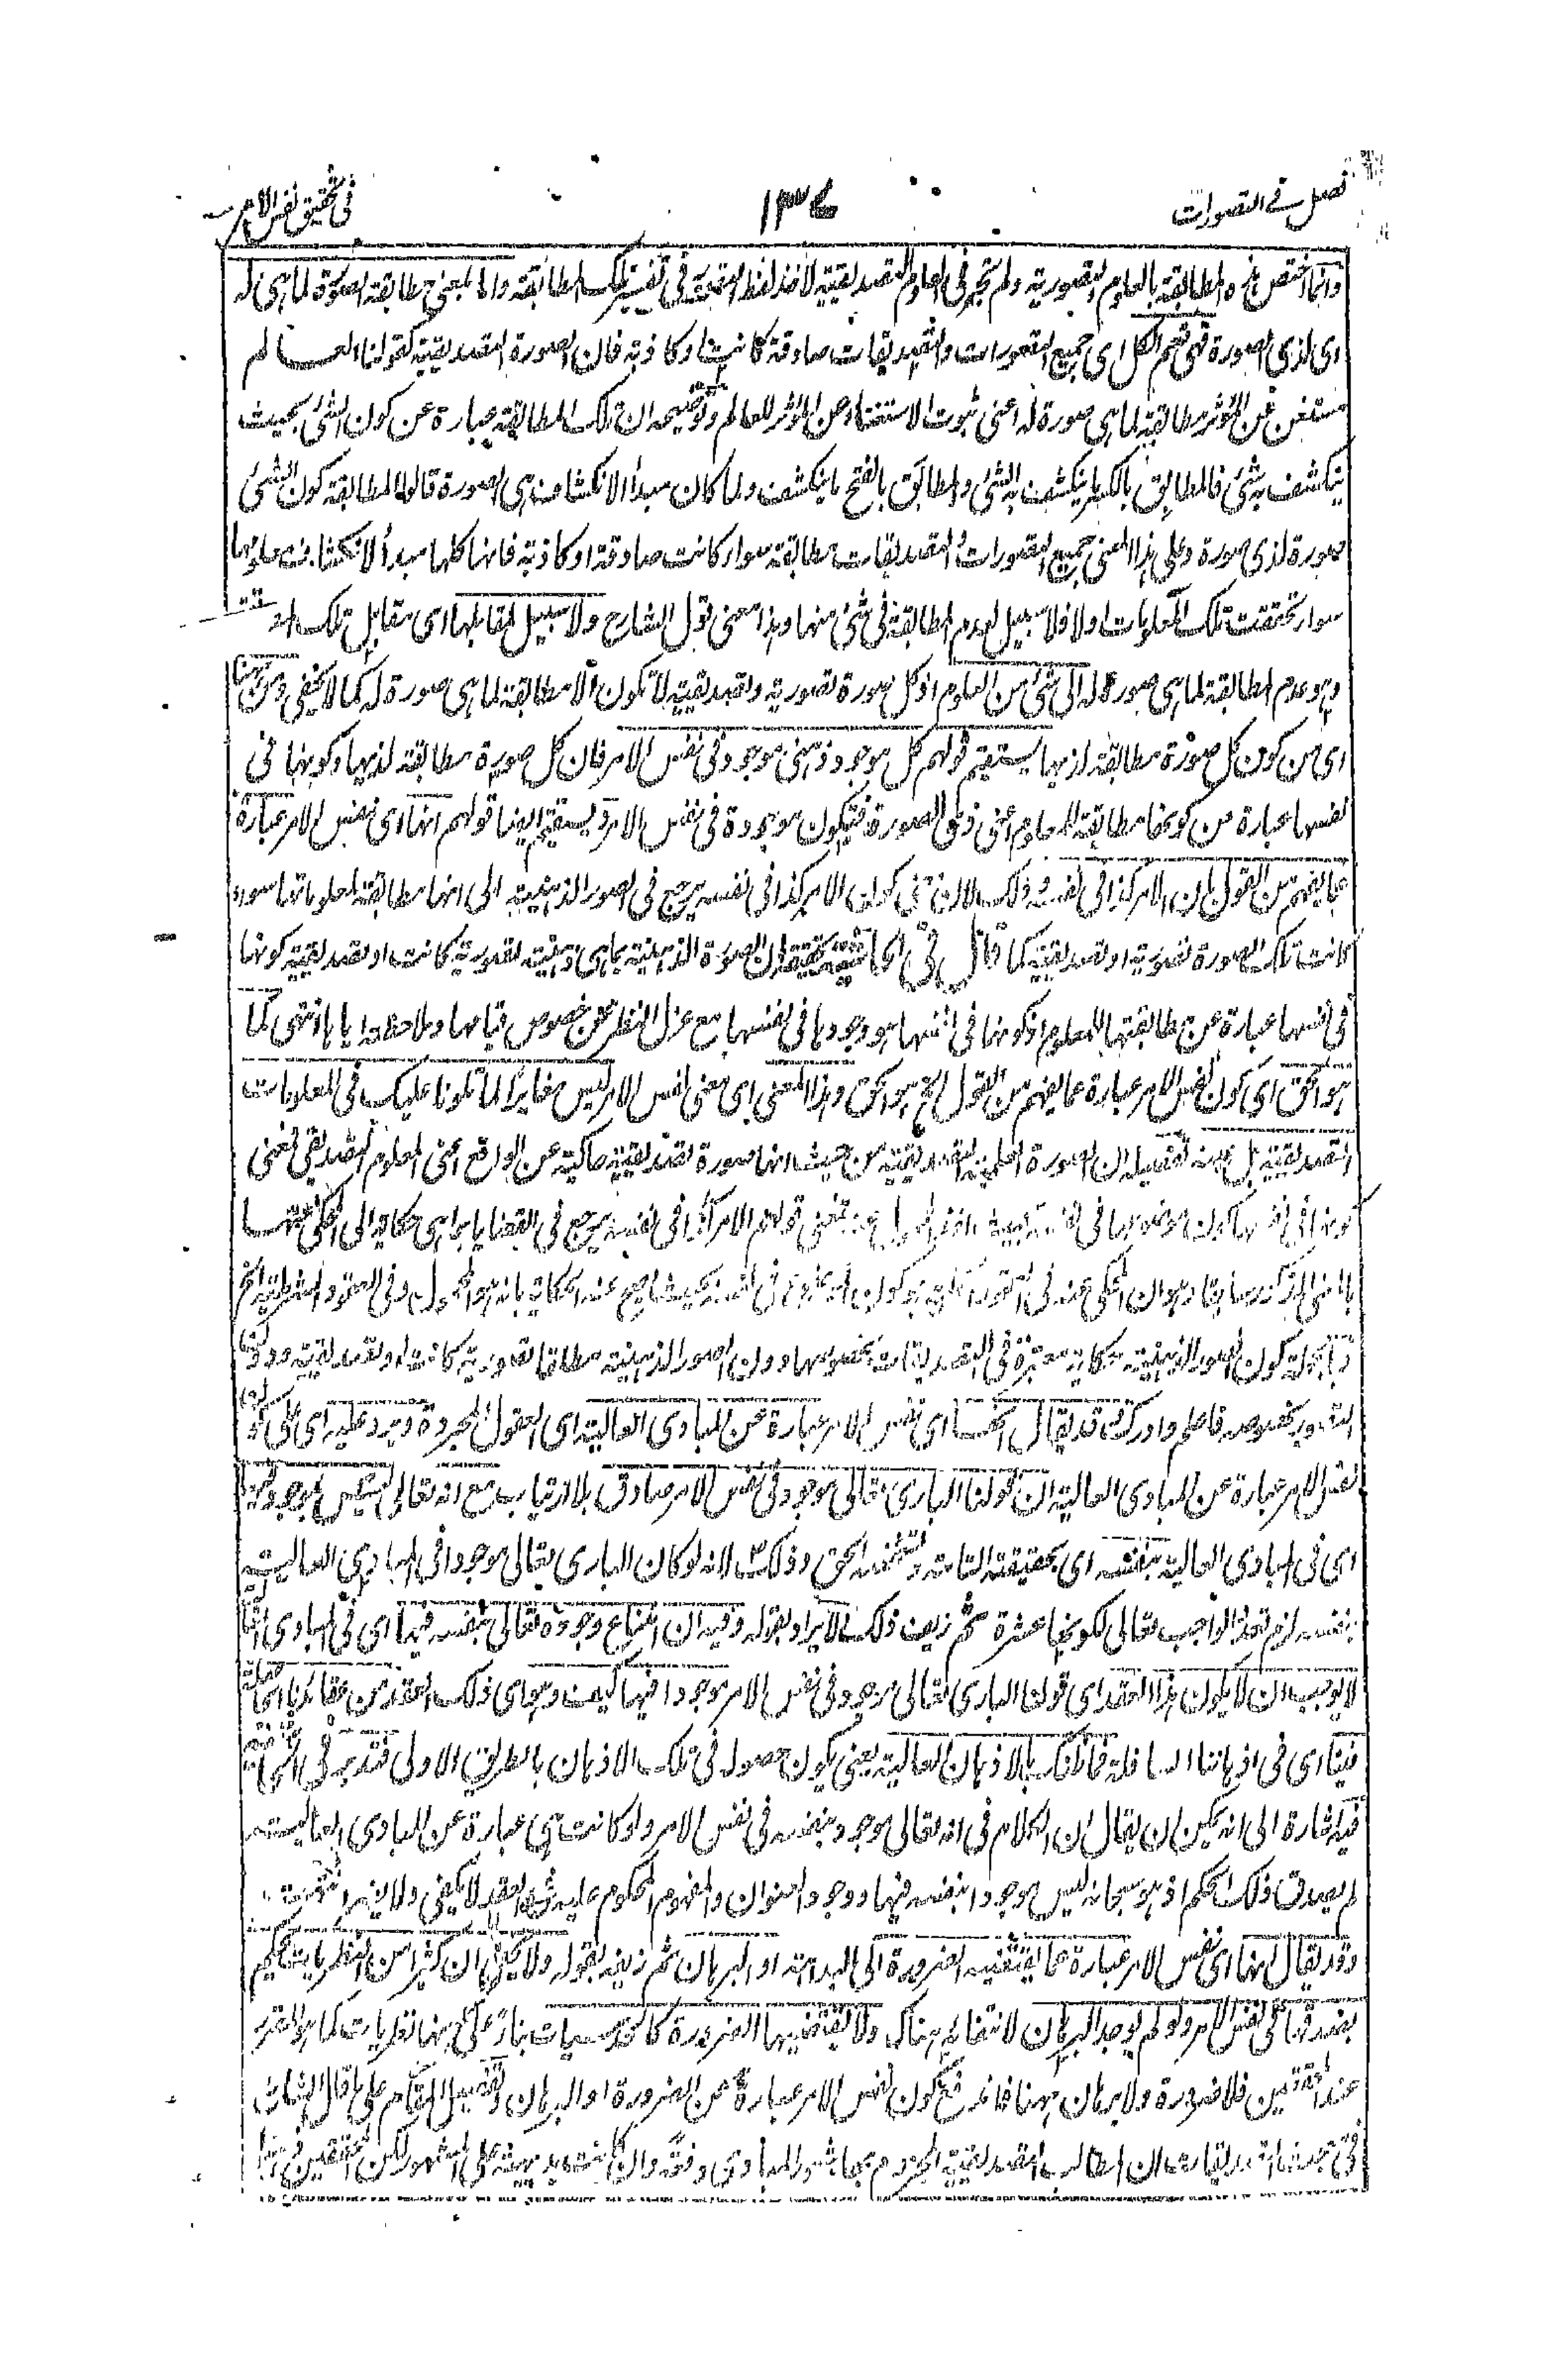 فصل في التصورات
١٣٤
في تحقيق نفس الامر
وانما اختص هذه المطابقة بالعلوم التصورية ولم تجر في العلوم التصديقية لاخذ لفظ في تفسير تلك المطابقة واما بمعنى مطابقة الصورة لما هي له
اى لذى الصورة فهي تعم الكل اى جميع التصورات والتصديقات صادقة كانت او كاذبة فان الصورة التصديقية كقولنا العالم
مستغن عن المؤثر مطابقة لما هي صورة له اعنى ثبوت الاستغناء عن المؤثر للعالم وتوضيحه ان تلك المطابقة عبارة عن كون الشئ بحيث
ينكشف به شئ فالمطابق بالكسر ما ينكشف به الشئ والمطابق بالفتح ما ينكشف ولما كان مبدأ الانكشاف هي الصورة قالوا المطابقة كون الشئ
صورة لذى صورة وعلى هذا المعنى جميع التصورات والتصديقات مطابقة سواء كانت صادقة او كاذبة فانها كلها مبدأ لانكشاف معلوماتها
سواء تحققت تلك المعلومات اولا فلا سبيل لعدم المطابقة في شئ منها وهذا معنى قول الشارح ولا سبيل لمقابلها اى مقابل تلك
وهو عدم المطابقة لما هي صورة له الى شئ من العلوم اذ كل صورة تصورية وتصديقية لا تكون الا مطابقة لما هي صورة له كما لا يخفى ومن ههنا
اى من كون كل صورة مطابقة لذيها يستقيم قولهم كل موجود ذهنى موجود في نفس الامر فان كل صورة مطابقة لذيها وكونها في
نفسها عبارة من كونها مطابقة للمعلوم اعنى ذى الصورة فتكون موجودة في نفس الامر ويستقيم ايضا قولهم انها اى نفس الامر عبارة
عما يفهم من القول بان الامر كذا في نفسه وذلك لان معنى كون الامر كذا في نفسه يرجع في الصور الذهنية الى انها مطابقة لمعلوماتها سواء
كانت تلك الصورة تصورية او تصديقية كما قال في الحاشية تحقيقه ان الصورة الذهنية بما هي ذهنية تصورية كانت او تصديقية كونها
في نفسها عبارة عن مطابقتها للمعلوم اذ كونها في نفسها هو وجودها في نفسها مع عزل النظر عن خصوص قيامها وملاحظة اياها انتهى كما
هو الحق اى كون نفس الامر عبارة عما يفهم من القول الخ هو الحق وهذا المعنى اى معنى نفس الامر ليس مغايرا لما تلونا عليك في المعلومات
التصديقية بل عينه تفصيله ان الصورة العلمية التصديقية من حيث انها صورة تصديقية حاكية عن الواقع اعنى المعلوم التصديقى فمعنى
كونها في نفسها كون موضوعها في نفسه بحيث فمعنى قولهم الامر كذا في نفسه يرجع في القضايا بما هي حكاية الى المحكى عنها
بالمعنى الذى ذكر سابقا وهو ان المحكى عنه في هو كون الموضوع في نفسه بحيث يصح عنه الحكاية بانه هو المحمول وفي العقود الشرطية الخ
وبالجملة كون الصور الذهنية حكاية معتبرة في التصديقات بخصوصها دون الصور الذهنية مطلقا تصورية كانت او تصديقية ودون
التصور بخصوصه فاعلم وادرك قد يقال انها اى نفس الامر عبارة عن المبادى العالية اى العقول المجردة ويرد عليه اى على كون
نفس الامر عبارة عن المبادى العالية ان قولنا البارى تعالى موجود في نفس الامر صادق بلا ارتياب مع انه تعالى ليس بموجود فيها
اى في المبادى العالية بنفسه اى بحقيقته التامة وتشخصه الحق وذلك لانه لو كان البارى تعالى موجودا في المبادى العالية
بنفسه لزم تعدد الواجب تعالى لكونها عشرة ثم زيف ذلك الايراد بقوله وفيه ان امتناع وجوده تعالى بنفسه فيها اى في المبادى
لا يوجب ان لا يكون هذا العقد اى قولنا البارى تعالى موجود في نفس الامر موجودا فيها كيف وهو اى ذلك العقد من عقائدنا الحاصلة
فينا اى في اذهاننا السافلة فما ظنك بالاذهان العالية يعنى يكون حصوله في تلك الاذهان بالطريق الاولى فتدبر في الحاشية
فيه اشارة الى انه يمكن ان يقال ان الكلام في انه تعالى موجود بنفسه في نفس الامر ولو كانت هي عبارة عن المبادى العالية
لم يصدق ذلك الحكم اذ هو سبحانه ليس موجودا بنفسه فيها ووجود العنوان والمفهوم المحكوم عليه في العقد لا يكفى ولا يضر انتهت
وقد يقال انها اى نفس الامر عبارة عما يقتضيه الضرورة اى البداهة او البرهان ثم زيفه بقوله ولا يخفى ان كثيرا من النظريات يحكم
بصدقها في نفس الامر ولو لم يوجد البرهان لانتفائه هناك ولا يقتضيها الضرورة كالحدسيات بناء على انها نظريات كما هو المقرر
عند المحققين فلا ضرورة ولا برهان ههنا فاندفع كون نفس الامر عبارة عن الضرورة او البرهان وتفصيل المقام على ما قال الشارح
في التصديقات ان المطالب التصديقية المجزوم بها المبادى دفعة وان كانت بديهية على المشهور لكن المحققين